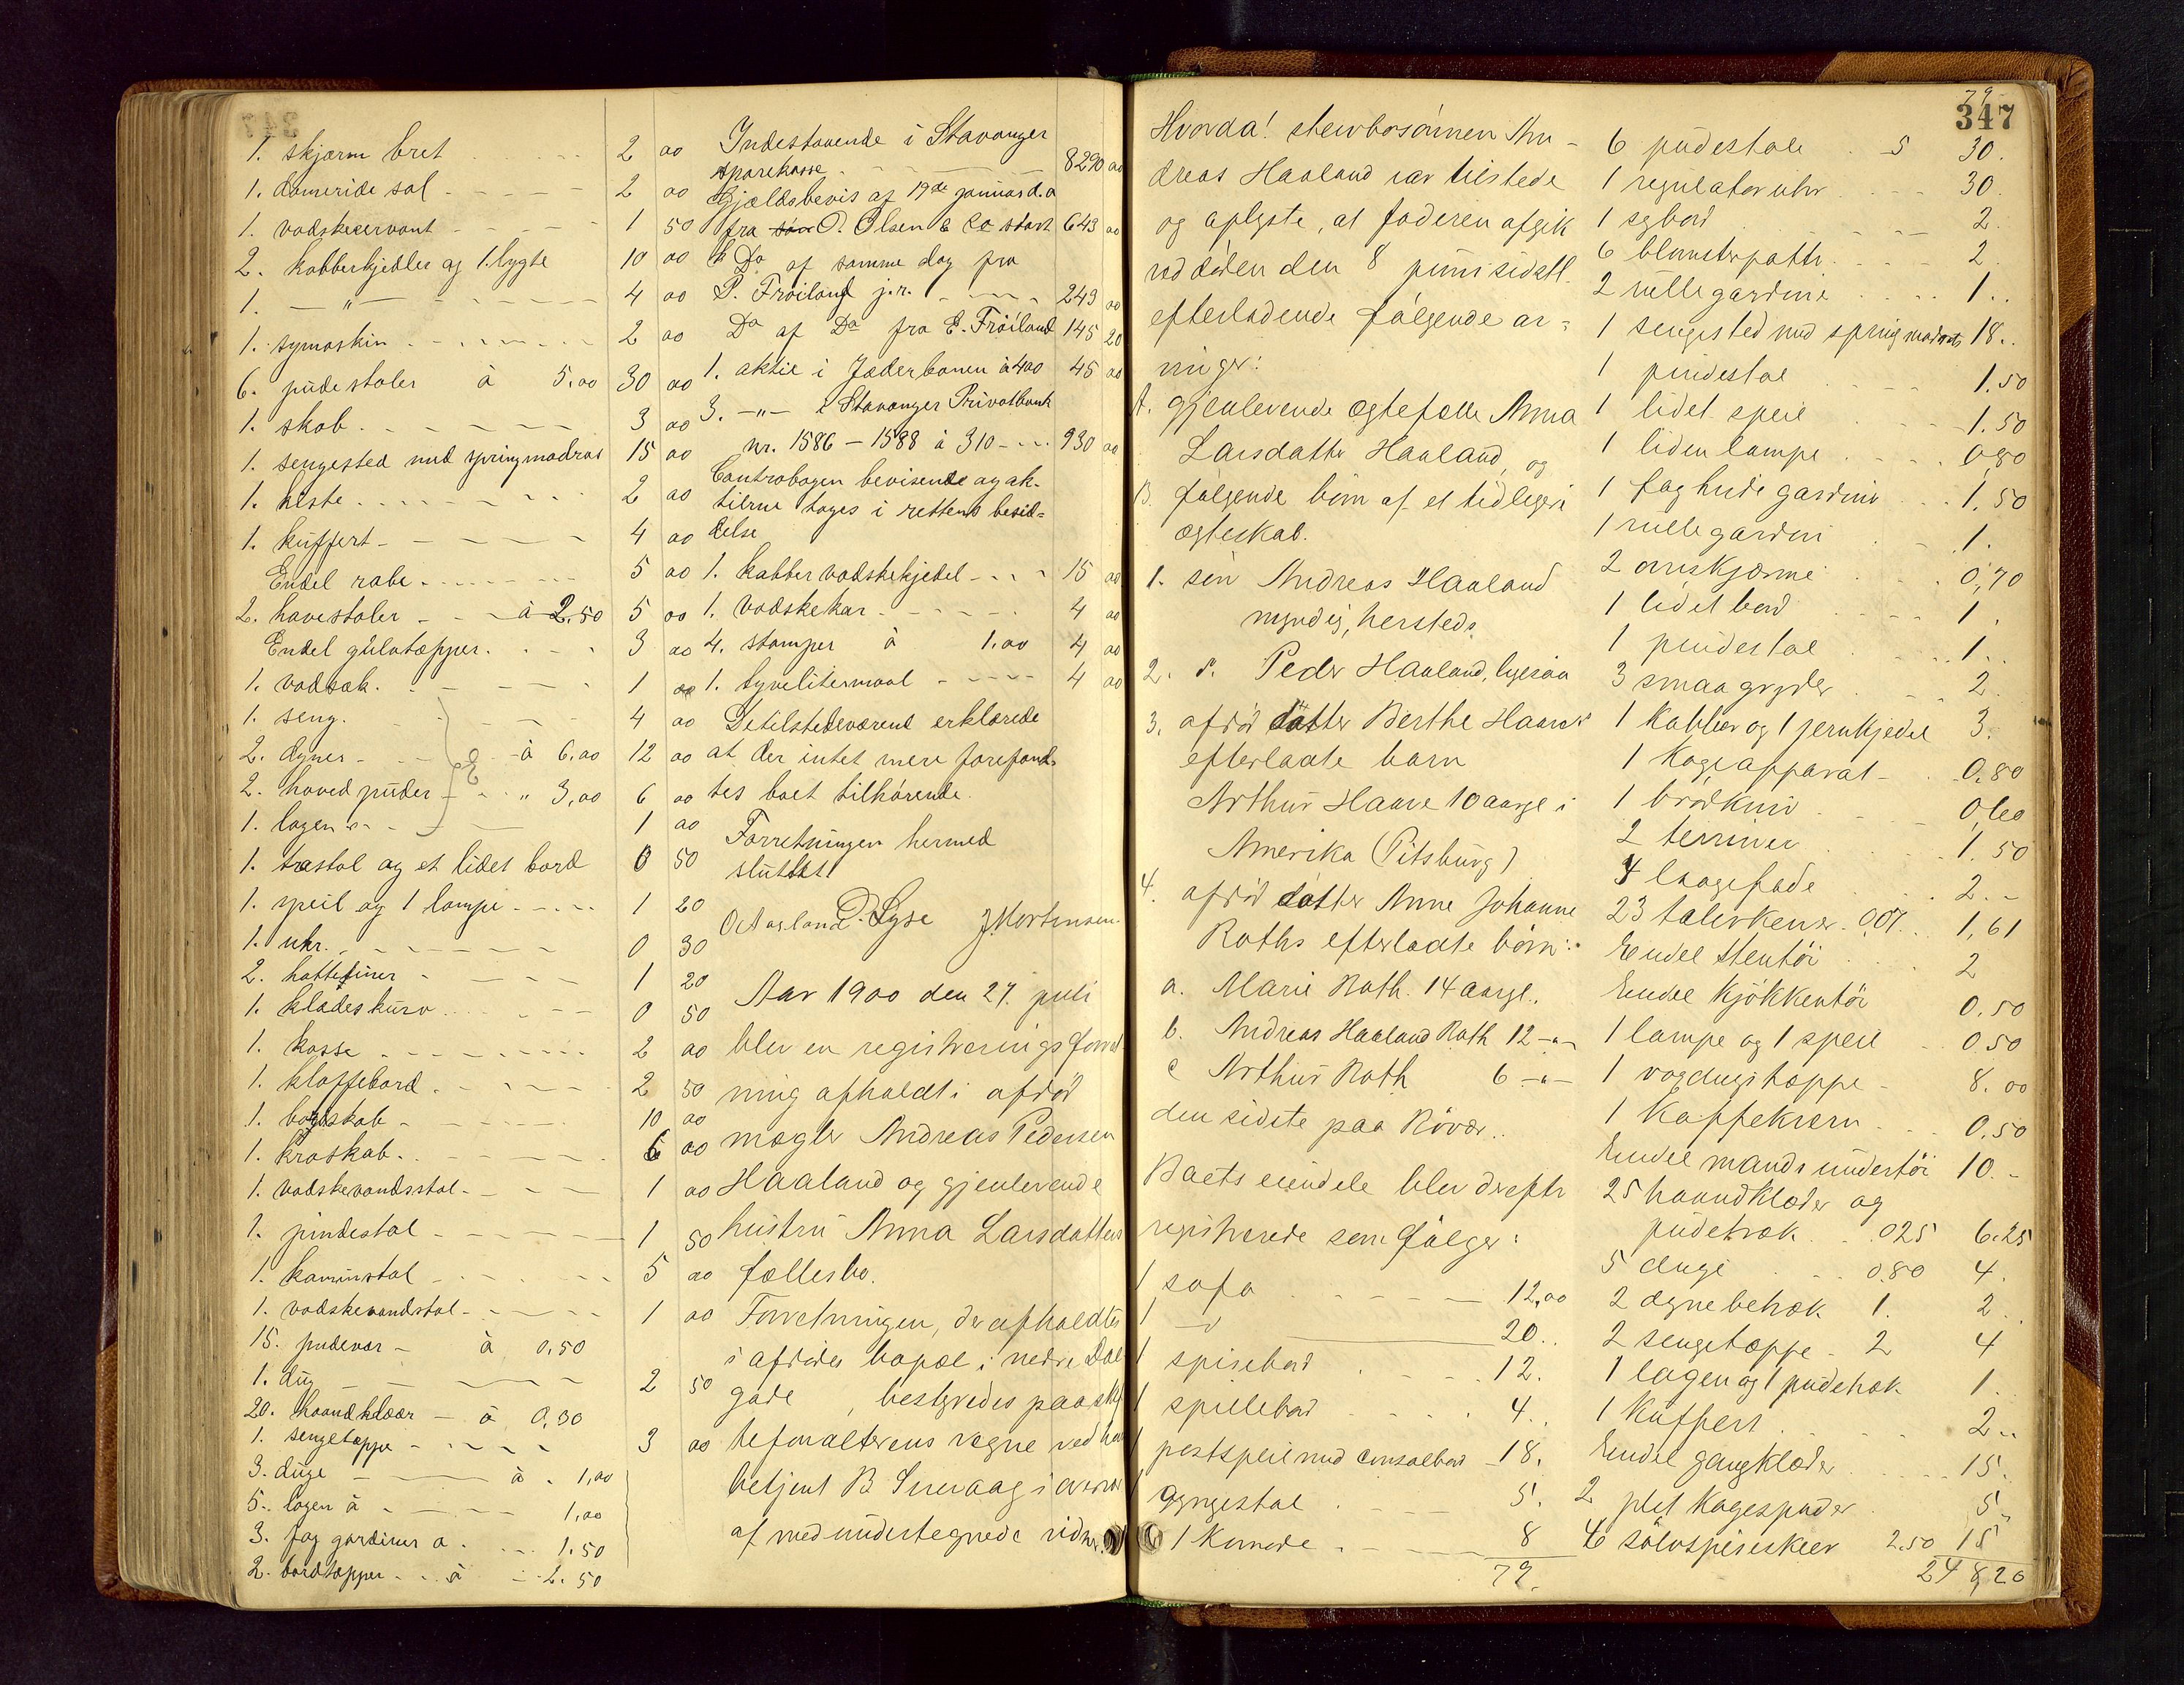 1. skjærm bret 2 00
1. dameride sal 2 00
1. vadskeservant 1 50
2. kobberkjedler og 1. lygte 10 00
1. —"— 4 00
1. symaskin 2 00
6. pudestoler à 5,00 30 00
1. skab 3 00
1. sengested med springmadras 15 00
1. kiste 2 00
1. kuffert 4 00
Endel rabe 5 00
2. havestoler à 2.50 5 00
Endel gulvtæpper 3 00
1. vadsæk 1 00
1. seng 4 00
2. dyner à 6,00 12 00
2. hovedpuder " 3,00 6 00
1. lagen 1 00
1. træstol og et lidet bord 0 50
1. speil og 1 lampe 1 20
1. uhr 0 30
2. hattefiner 1 20
1. klædeskurv 0 50
1. kasse 2 00
1. klaffebord 2 50
1. bogskab 10 00
1. kroskab 6 00
1. vadskevandsstol 1 00
1. pindestol 1 50
1. kaminstol 5 00
1. vadskevandstol 1 00
15. pudevar à 0,50
1. dug 2 50
20. haandklæer à 0,30
1. sengetæppe 3 00
3. duge à 1,00
5. lagen à 1,00
3. fag gardiner a 1.50
2. bordtæpper à 2.50
Indestaaende i Stavanger
sparekasse 8290 00
Gjældsbevis af 19de januar d.a
fra O. Olsen & Co stort 643 00
Do af samme dag fra
P. Frøiland j.r. 243 00
Do af Do fra E. Frøiland 145 20
1. aktie i Jæderbanen à 400 45 00
3. —"— i Stavanger Privatbank
nr. 1586 – 1588 à 310 930 00
Contrabogen bevisende og ak-
tierne toges i rettens besid-
delse
1. kobber vadskekjedel 15 00
1. vadskekar 4 00
4. stamper à 1.00 4 00
1. tyvelitermaal 4 00
De tilstedeværend erklærede
at der intet mere forefand-
tes boet tilhørende.
Forretningen hermed
sluttet
O. Aasland D. Lyse J. Mortensen
Aar 1900 den 27. juli
blev en registreringsforret
ning afholdt i afdød
mægler Andreas Pedersen
Haaland og gjenlevende
hustru Anna Larsdatters
fællesbo.
Forretningen, der afholdtes
i afdødes bopæl i nedre Dal-
gade, bestyredes paa sky
befoualterens vegne ved
betjent B Snevaag i overvær
af med undertegnede vidner.
79
347
Hvorda! stervbosønnen An-
dreas Haaland var tilstede
og oplyste, at faderen afgik
ved døden den 8 juni sidstl.
efterladende følgende ar-
vinger:
A. gjenlevende ægtefælle Anna
Larsdatter Haaland, og
B. følgende børn af et tidligere
ægteskab.
1. søn Andreas Haaland
myndig, hersteds.
2. s. Peder Haaland, ligesaa
3. afdød datter Berthe Haares
efterladte barn
Arthur Haare 10 aargl i
Amerika (Pitsburg)
4. afdød datter Anne Johanne
Roths efterladte børn:
a. Marie Roth. 14 aargl.
b. Andreas Haaland Roth 12 —"—
c Arthur Roth 6 —"—
den sidste paa Røvær..
Boets eiendele blev derefter
registrerede som følger:
1 sofa 12,00
1 — 20..
1 spisebord 12.
1 spillebord 4.
1 postspeil med consolbord 18.
1 gyngestol 5.
1 Komode 8
79.
6 pudestole 5 30.
1 regulatoruhr 30.
1 sybord 2.
6 blomsterpotter 2.
2 rullegardine 1..
1 sengested med springmadrads 18..
1 pindestol 1.50
1 lidet speil 1.50
1 liden lampe 0,80
1 fag hvide gardiner 1.50
1 rullegardin 1.
2 ovnskjærme 0,70
1 lidet bord 1.
1 pindestol 1..
3 smaa gryder 2.
1 Kobber og 1 jernkjedel 3.
1 Kogeapparat 0.80
1 brødkniv 0,60
2 terriner 1.50
4 laagefade 2.-
23 talerkener 0,07 1,61
Endel stentøi 2
Endel Kjøkkentøi 0.50
1 lampe og 1 speil 0.50
1 voxdugstæppe 8.00
1 Kaffekværn 0.50
Endel mands undertøi 10.-
25 haandklæder og
pudetræk 025 6.25
5 duge 0.80 4.
2 dynebetræk 1. 2.
2 sengetæppe 2 4
1 lagen og 1 pudetræk 1.
1 Kuffert 2..
Endel gangklæder 15.
2 plet Kagespader 5.
6 sølvspiseskeer 2.50 15
248,26